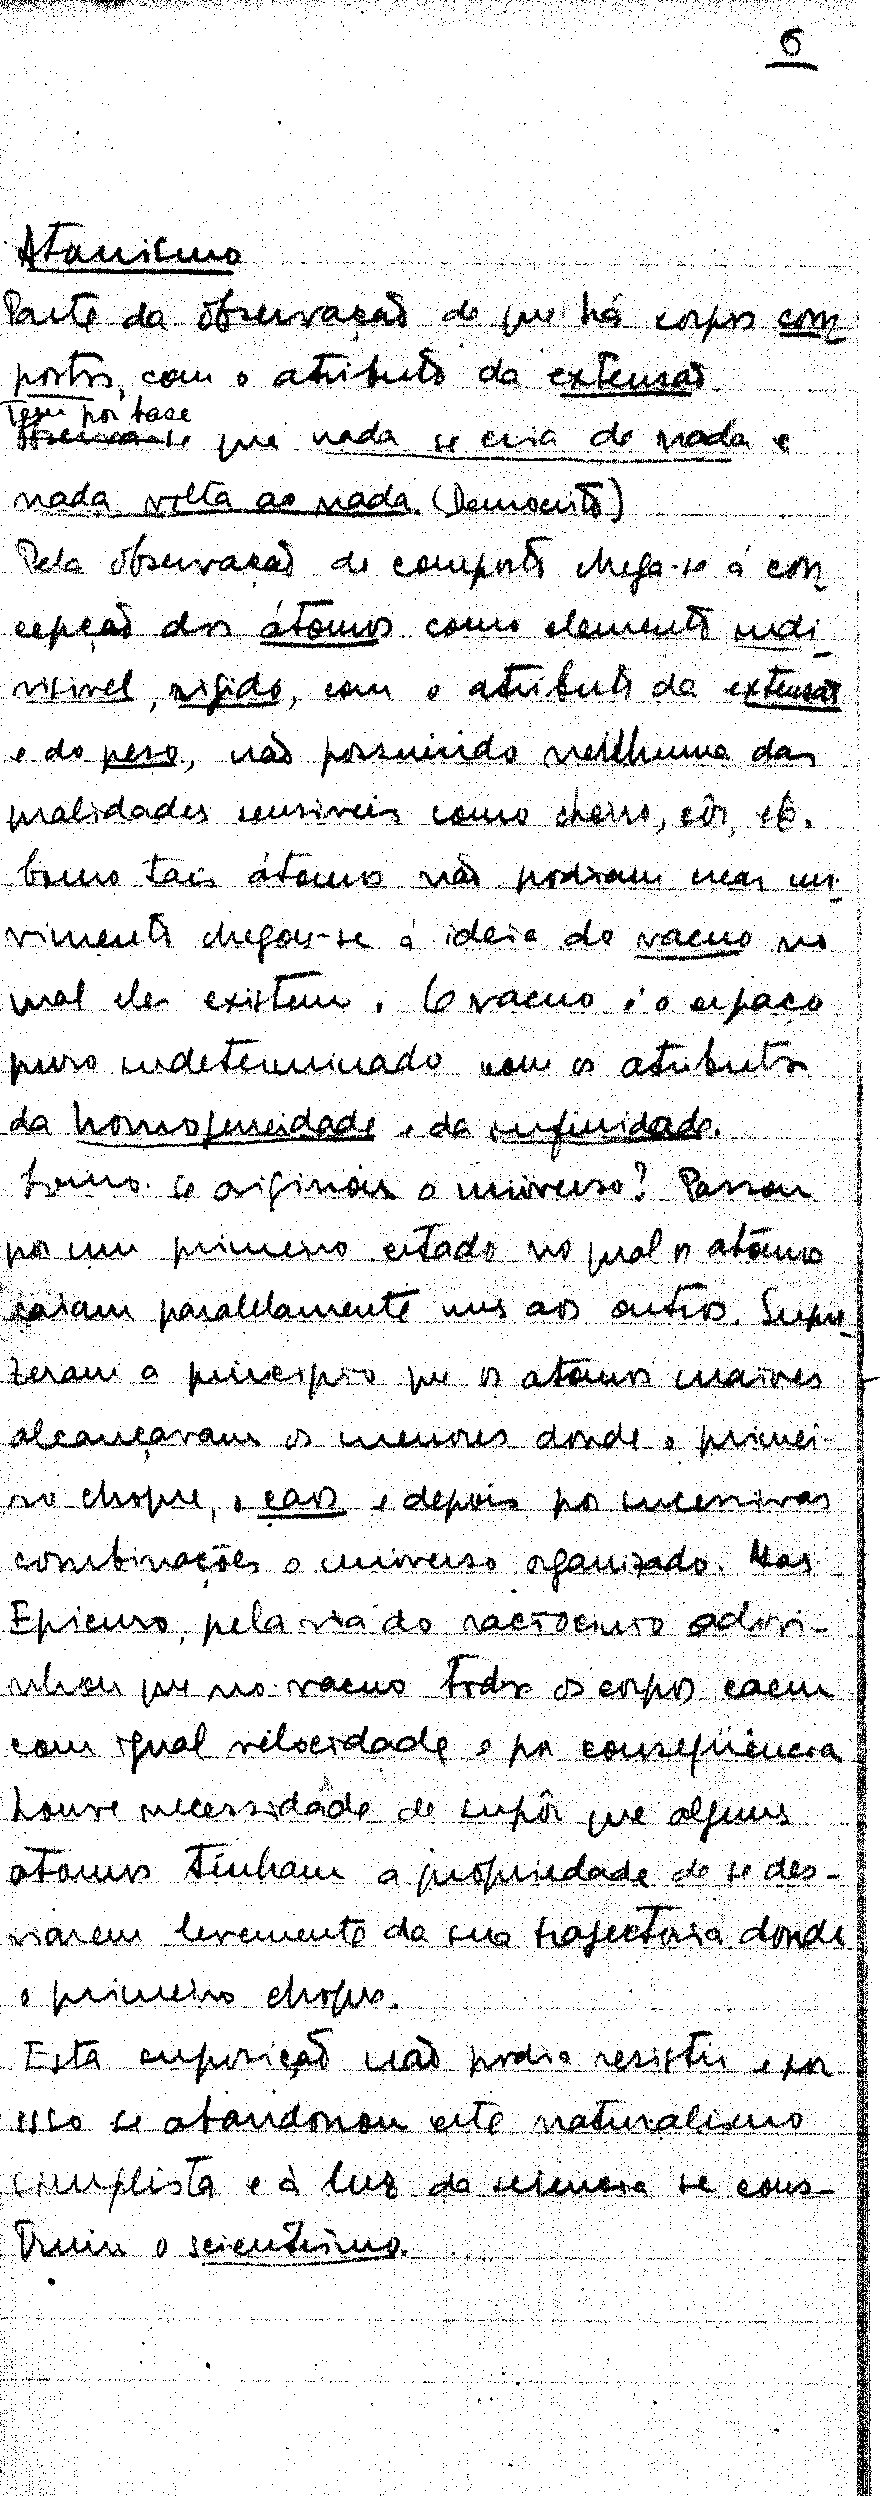 6
Atomismo
Parte da observação de que há corpos com
postos, com o atributo da extensão.
Tem por base
Observa-se que nada se cria de nada e
nada volta ao nada (Democrito)
Pela observação do composto chega-se á con
cepção dos átomos como elemento indi
visivel, rigido, com o atributo da extensão
e do peso, não possuindo nenhuma das
qualidades sensiveis como cheiro, côr, etc.
Como tais átomos não podiam criar mo-
vimento chegou-se á ideia do vacuo no
qual eles existem. O vacuo é o espaço
puro indeterminado com os atributos
da homogeneidade e da infinidade.
Como se originou o universo? Passou
por um primeiro estado no qual os atomos
caíam paralelamente uns aos outros. Supu-
zeram a principio que os atomos maiores
alcançavam os menores donde o primei-
ro choque, o caos e depois por sucessivas
combinações o universo organizado. Mas
Epicuro, pela via do raciocinio adivi-
nhou que no vacuo todos os corpos caem
com igual velocidade e por conseqüencia
houve necessidade de supôr que alguns
atomos tinham a propriedade de se des-
viarem levemente da sua trajectoria donde
o primeiro choque.
Esta suposição não podia resistir e por
isso se abandonou este naturalismo
simplista e à luz da sciencia se cons-
truiu o scientismo.